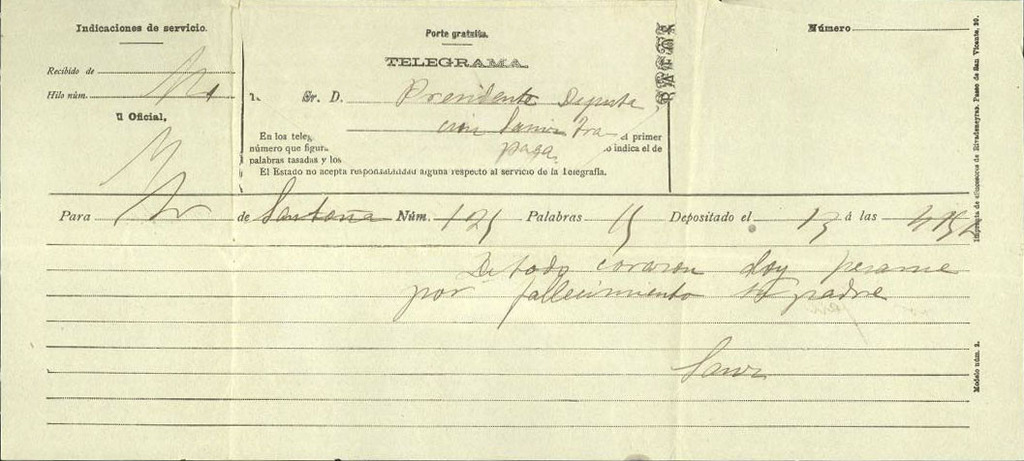 Indicaciones de servicio.
Recibido de
Hilo núm.
Oficial,
Porte gratuita.
TELEGRAMA
Sr. D. Presidente Diputa
cion
paga
En los teleg
el primer
número que figur
o indica el de
palabras tasadas y los
El Estado no acepta responsabilidad alguna respecto al servicio de la Telegrafía.
Número
Para de Santoña Núm. 121 Palabras 15 Depositado el 13 á las
De todo corazon doy pesame
por fallecimiento su padre
Imprenta de sucesores de Rivadeneyra. Paseo de San Vicente, 20.
Modelo núm. 2.